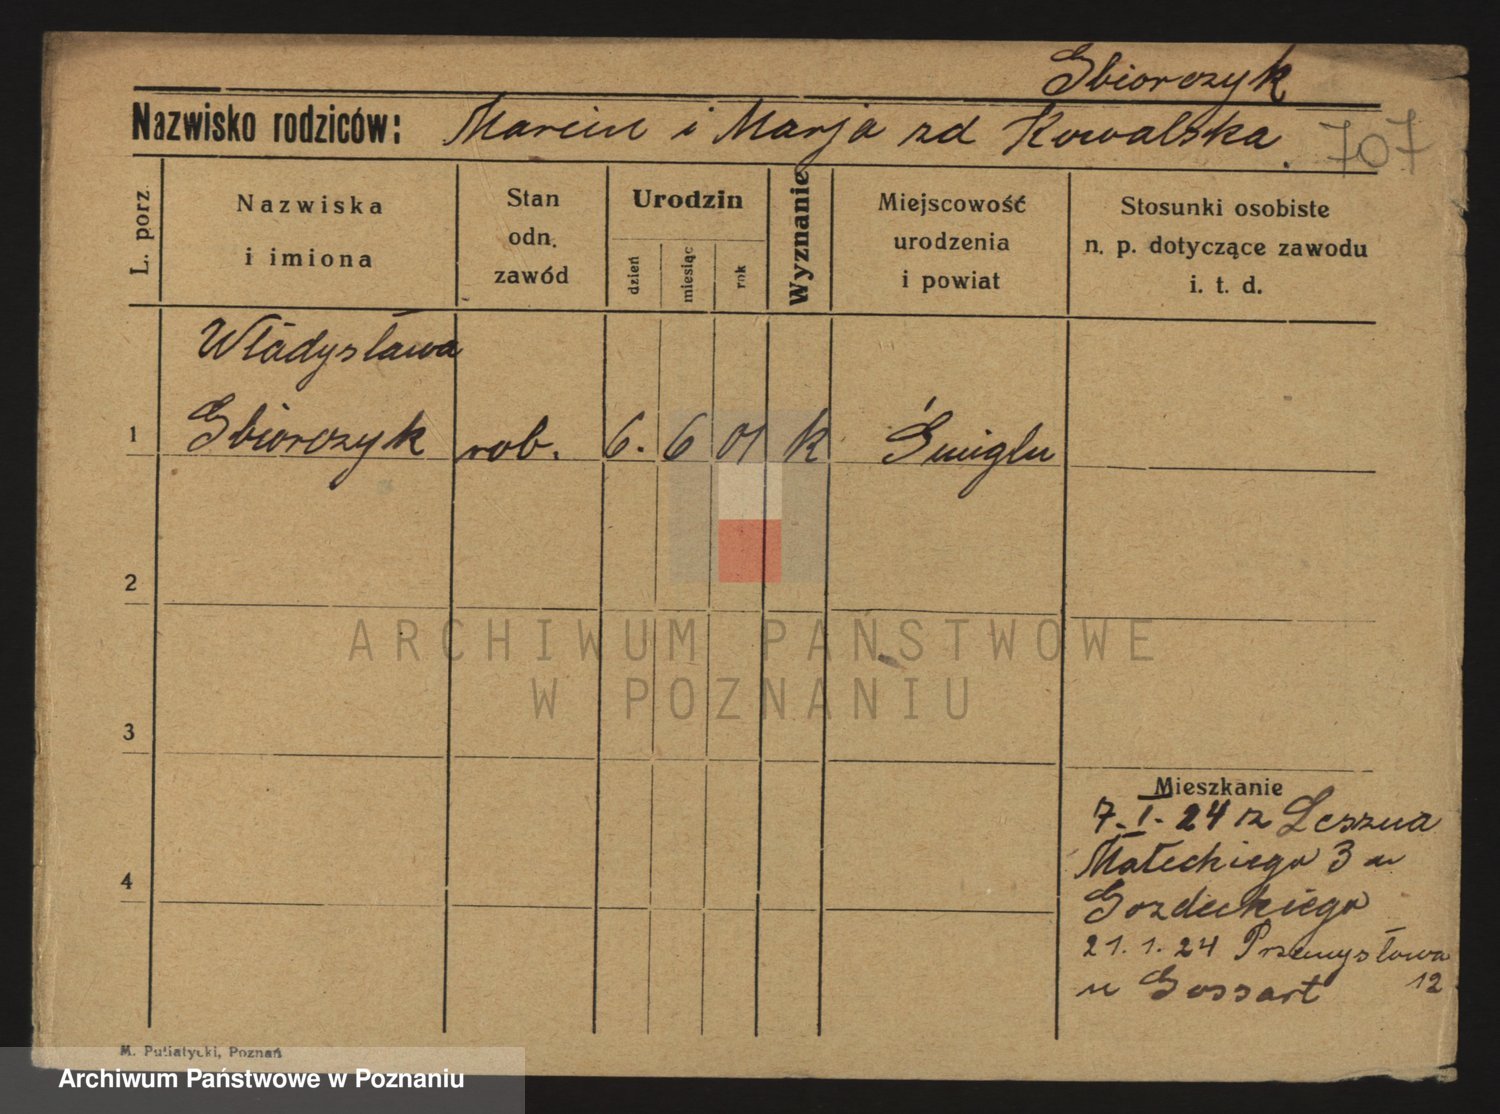 Gbiorczyk
Nazwisko rodziców: Marcin i Marja zd Kowalska. 707
L. porz.
Nazwiska
i imiona
Stan
odn.
zawód
Urodzin
dzień
miesiąc
rok
Wyznanie
Miejscowość
urodzenia
i powiat
Stosunki osobiste
n. p. dotyczące zawodu
i. t. d.
Władysława
1 Gbiorczyk rob. 6. 6 01 k Śmiglu
2
ARCHIWUM PAŃSTWOWE
W POZNANIU
3
Mieszkanie
7. I. 24 z Leszna
Małeckiego 3 u
4
Gozdeckiego
21. 1. 24 Przemysłowa
12
u Gossart
M. Putiatycki, Poznań
Archiwum Państwowe w Poznaniu